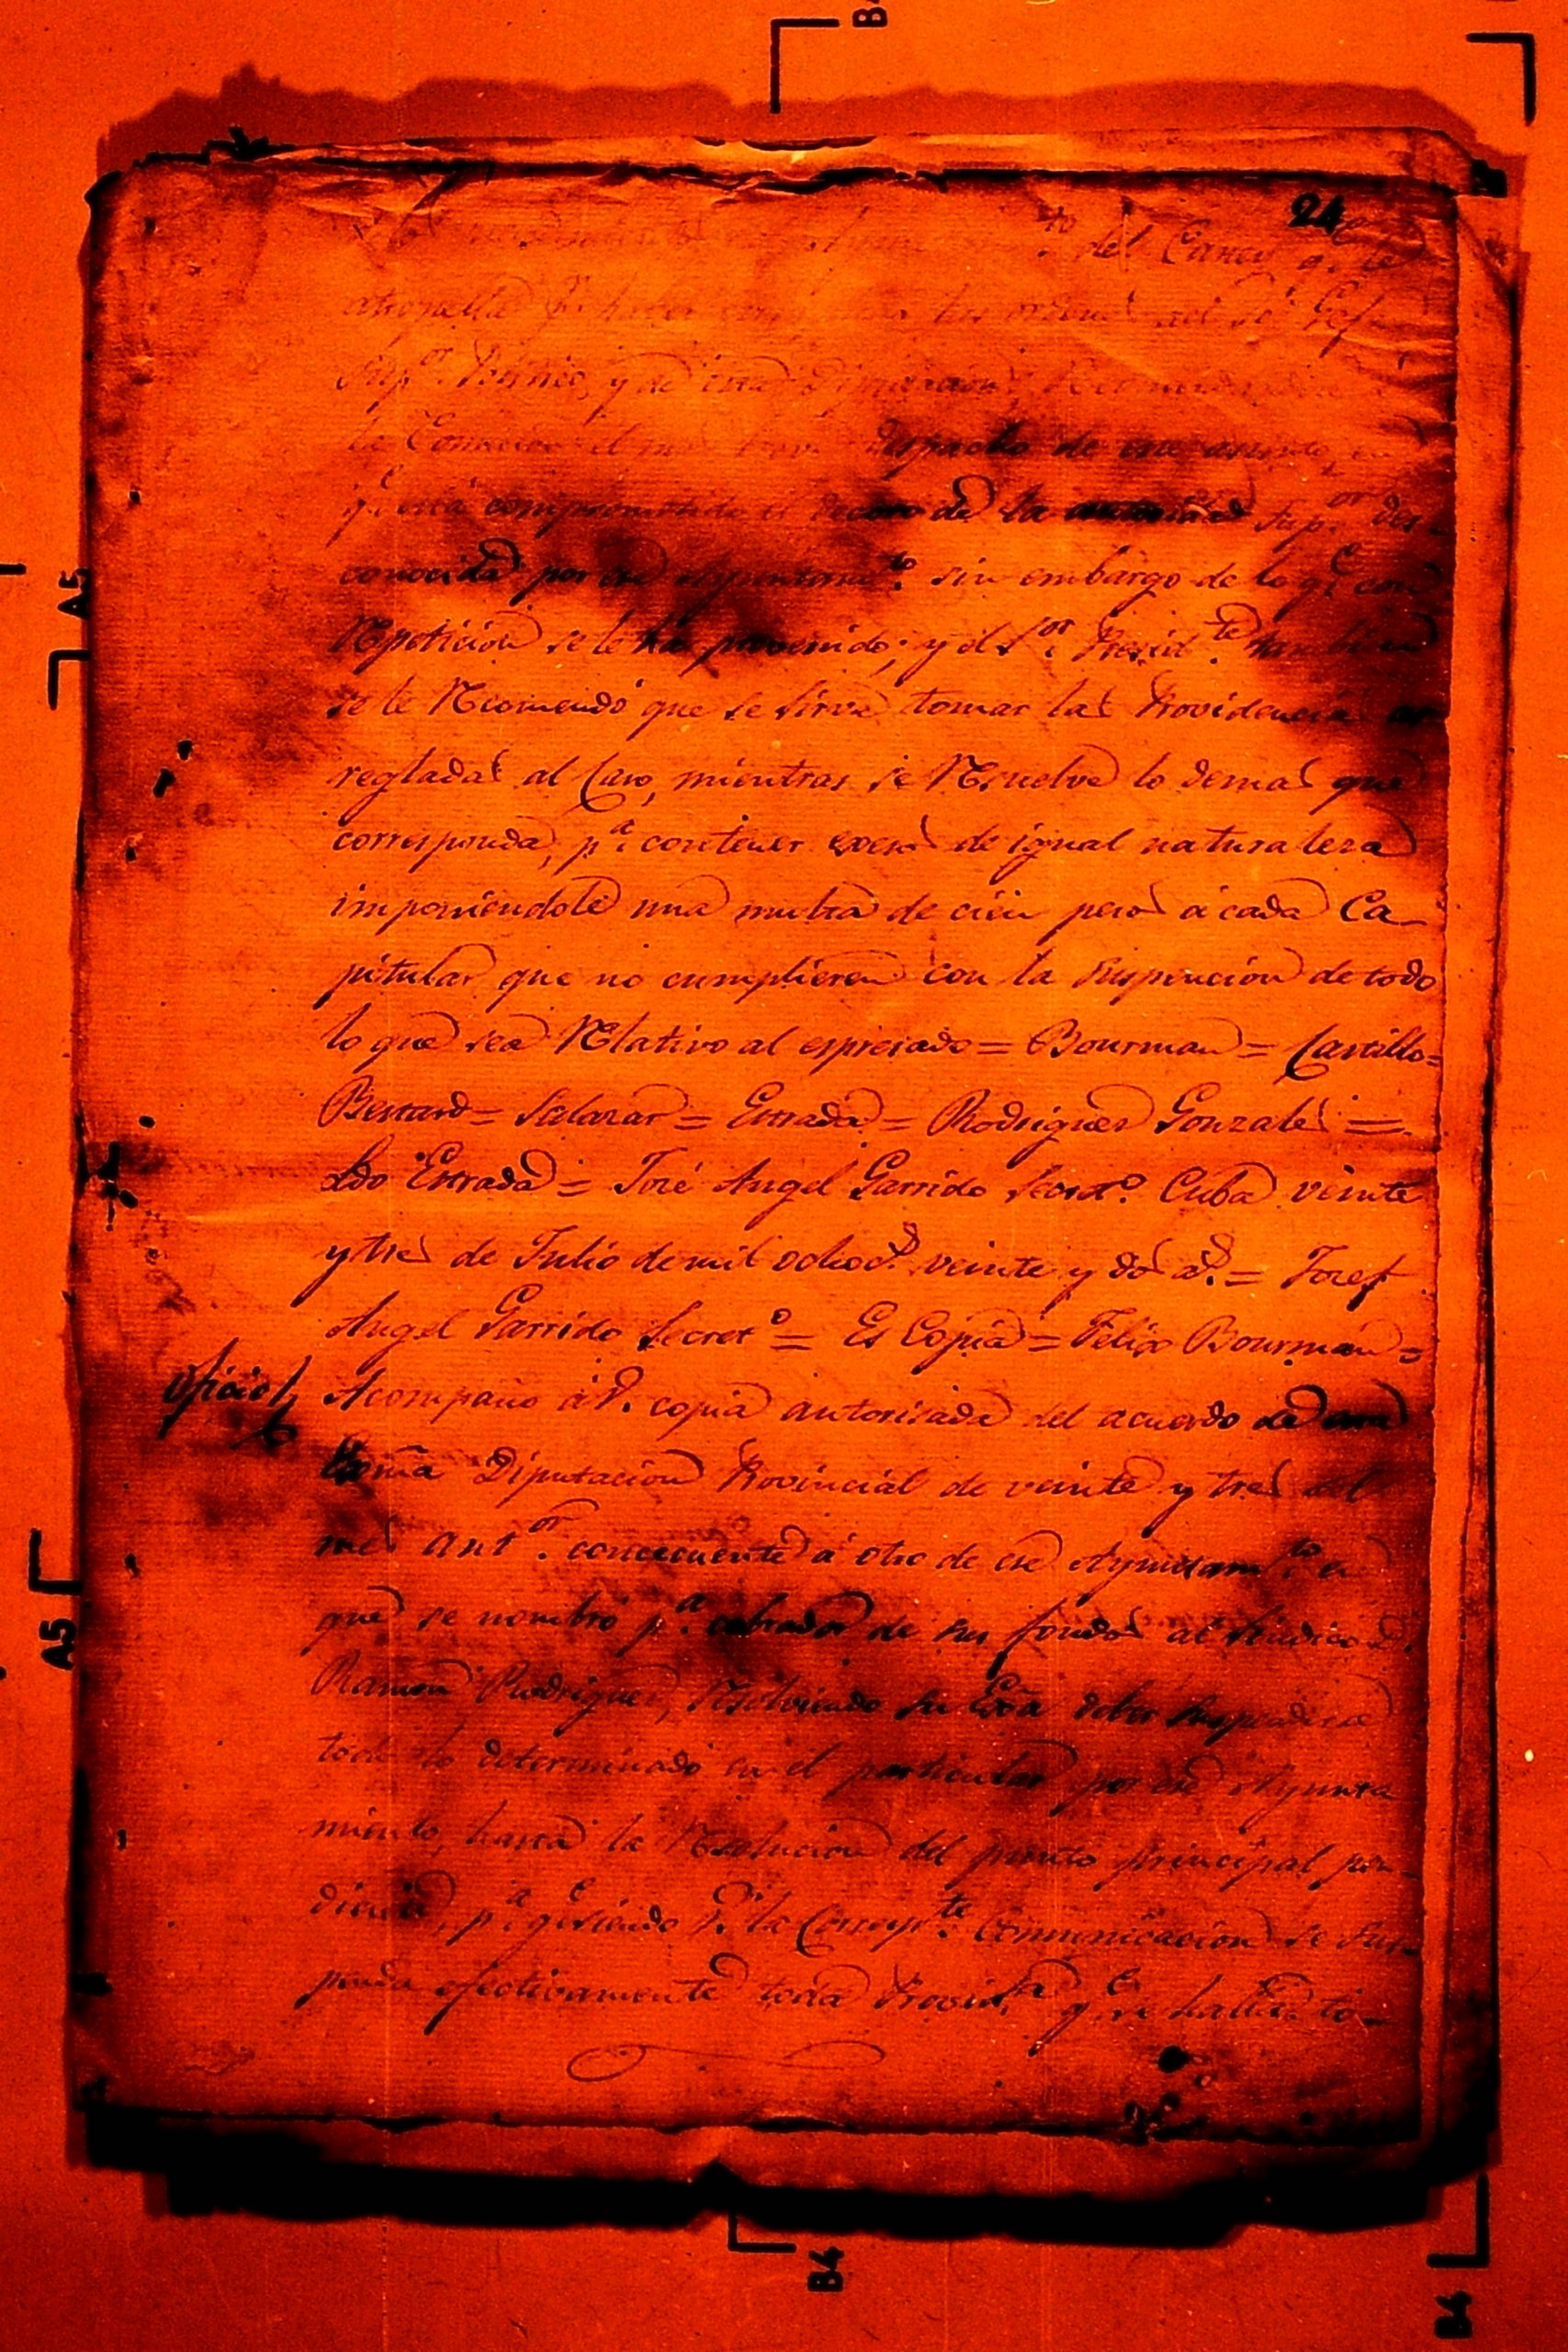 24
del Caney q.e se
atropella
Sup.or Politico, y de esta Diputacion
la Comision el mas breve despacho de este asunto, en
q.e está comprometido el decoro de la autoridad Sup.or des-
conocida por ese Ayuntam.to sin embargo de lo q.e con
Repeticion se le ha prevenido; y el S.or Presid.te tambien
se le Recomendó que se sirva tomar las Providencias ar
regladas al Caso, mientras se Resuelve lo demas que
corresponda, p.a contener exesos de igual naturaleza
imponiendole una multa de cien pesos á cada Ca-
pitular que no cumplieren con la suspencion de todo
lo que sea Relativo al espresado = Bourman = Castillo=
Bestard = Salazar = Estrada = Rodriguez Gonzales =
Ldo Estrada = José Angel Garrido Secret.o Cuba veinte
y tres de Julio de mil ochoc.s veinte y dos a.s = Josef
Angel Garrido Secret.o = Es Copia = Felix Bourman =
Oficio
Acompaño á V. copia autorisada del acuerdo de esta
Exma Diputacion Provincial de veinte y tres del
mes ant.or concecuente á otro de ese Ayuntam.to en
que se nombró p.a cobrador de sus fondos al Sindico
Ramon Rodriguez, Resolviendo su Exa deber suspenderse
todo lo determinado en el particular por ese Ayunta
miento, hasta la Resolucion del punto principal pen-
diente, p.a q.e siendo V. la Corresp.te Comunicacion se sus-
penda efectivamente toda Provid.a q.e se halle to-